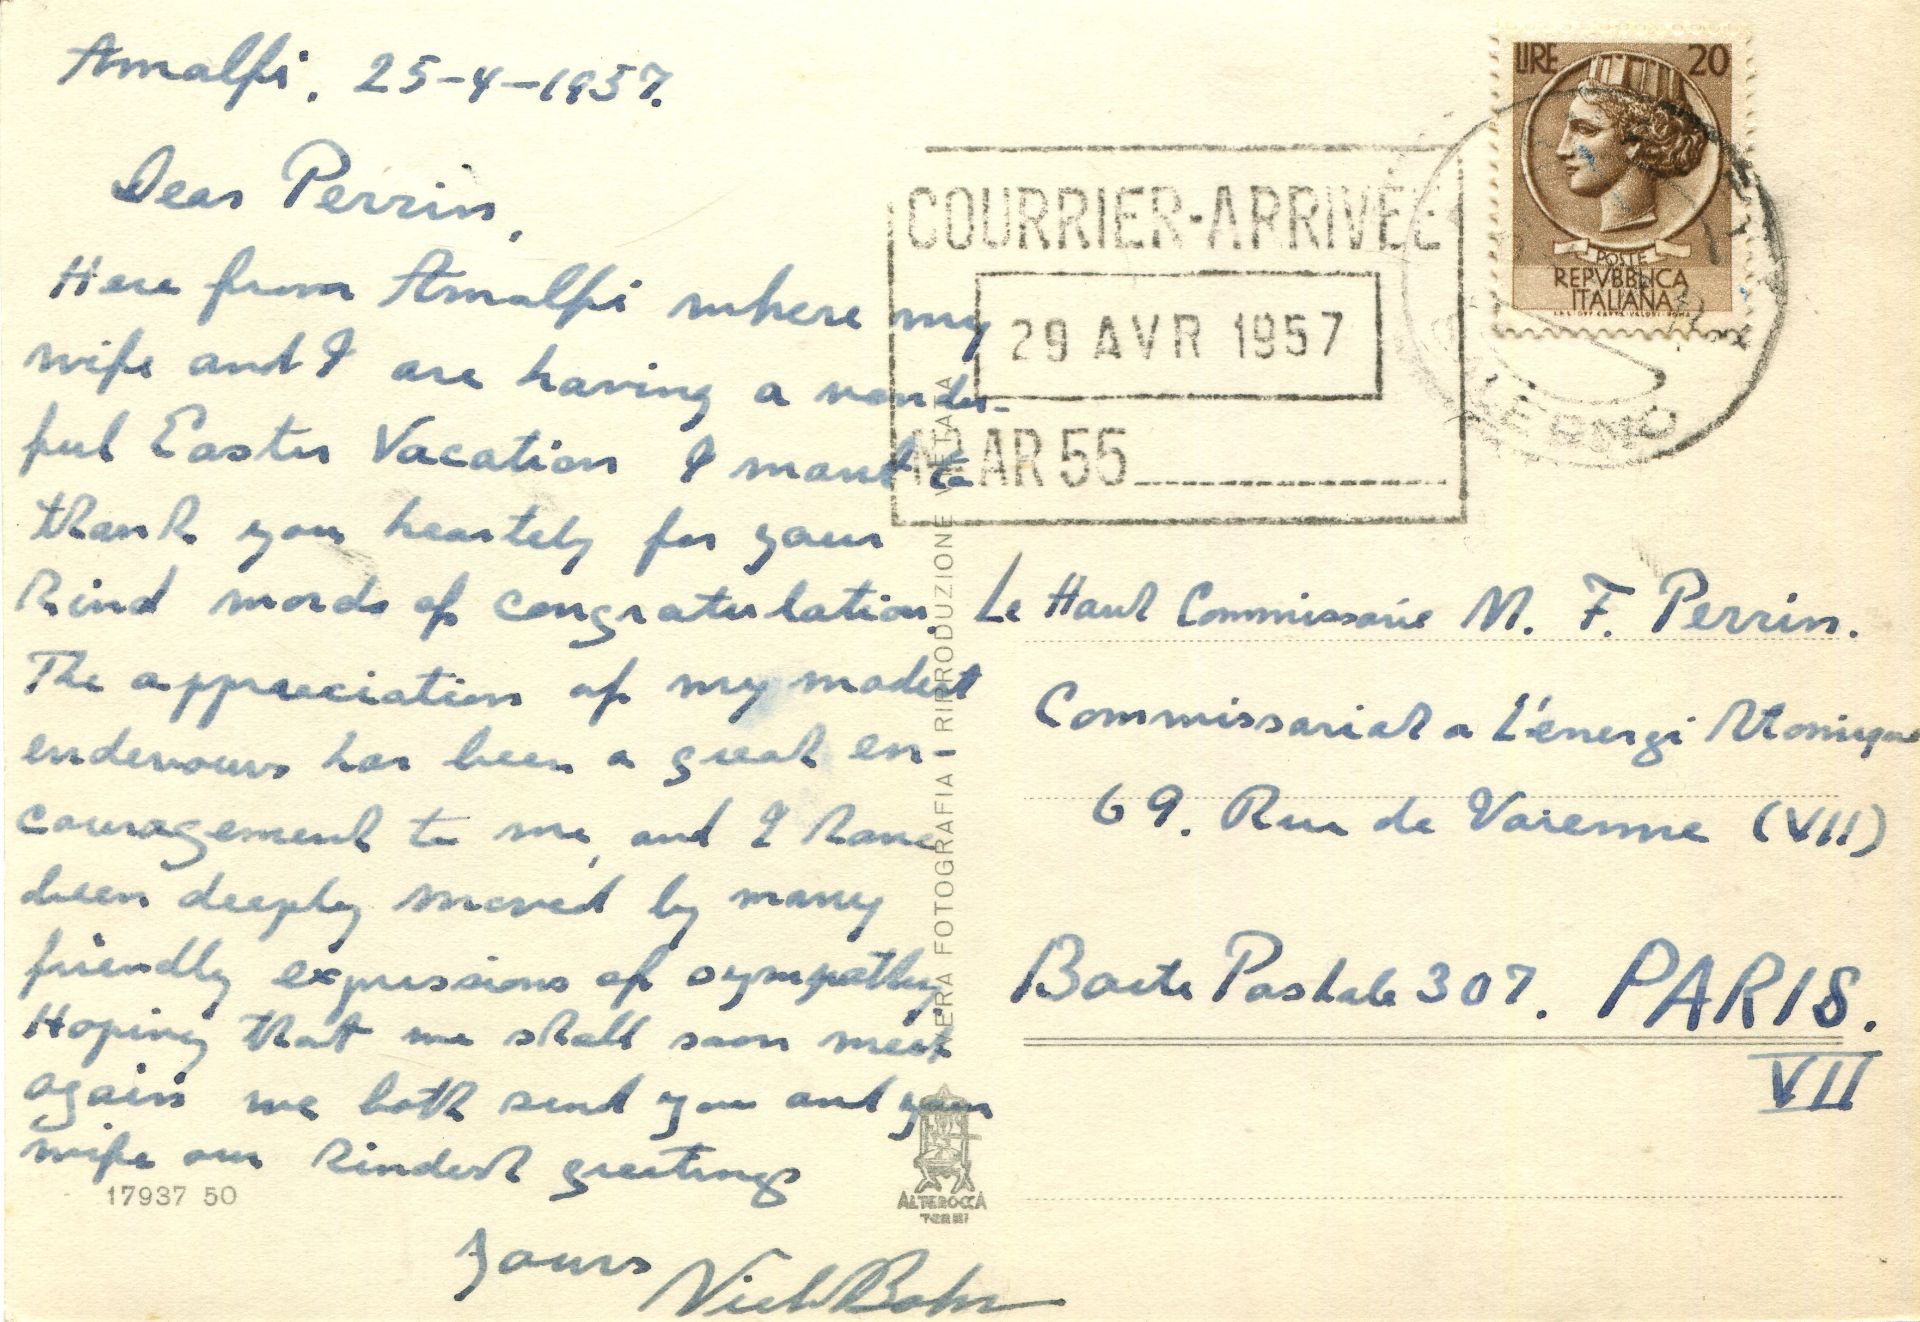 Amalfi, 25-4-1957.
Dear Perrin,
Here from Amalfi where my
wife and I are having a wonder-
ful Easter Vacation I want to
thank you heartely for your
kind words of congratulation.
The appreciation of my modest
endevours has been a great en-
couragement to me, and I have
been deeply moved by many
friendly expressions of sympathy
Hoping that we shall soon meet
again we both send you and your
wife our kindest greetings
17937 50
Yours Niels Bohr
VERA FOTOGRAFIA RIPRODUZIONE VIETATA
ALTEROCCA
TERNI
LIRE 20
POSTE
REPVBBLICA
ITALIANA
COURRIER-ARRIVÉE
29 AVR 1957
AR 55
Le Haut Commissarie M. F. Perrin.
Commissariat a L'énergi Atomique
69. Rue de Varenne (VII)
Boite Postale 307. PARIS.
VII